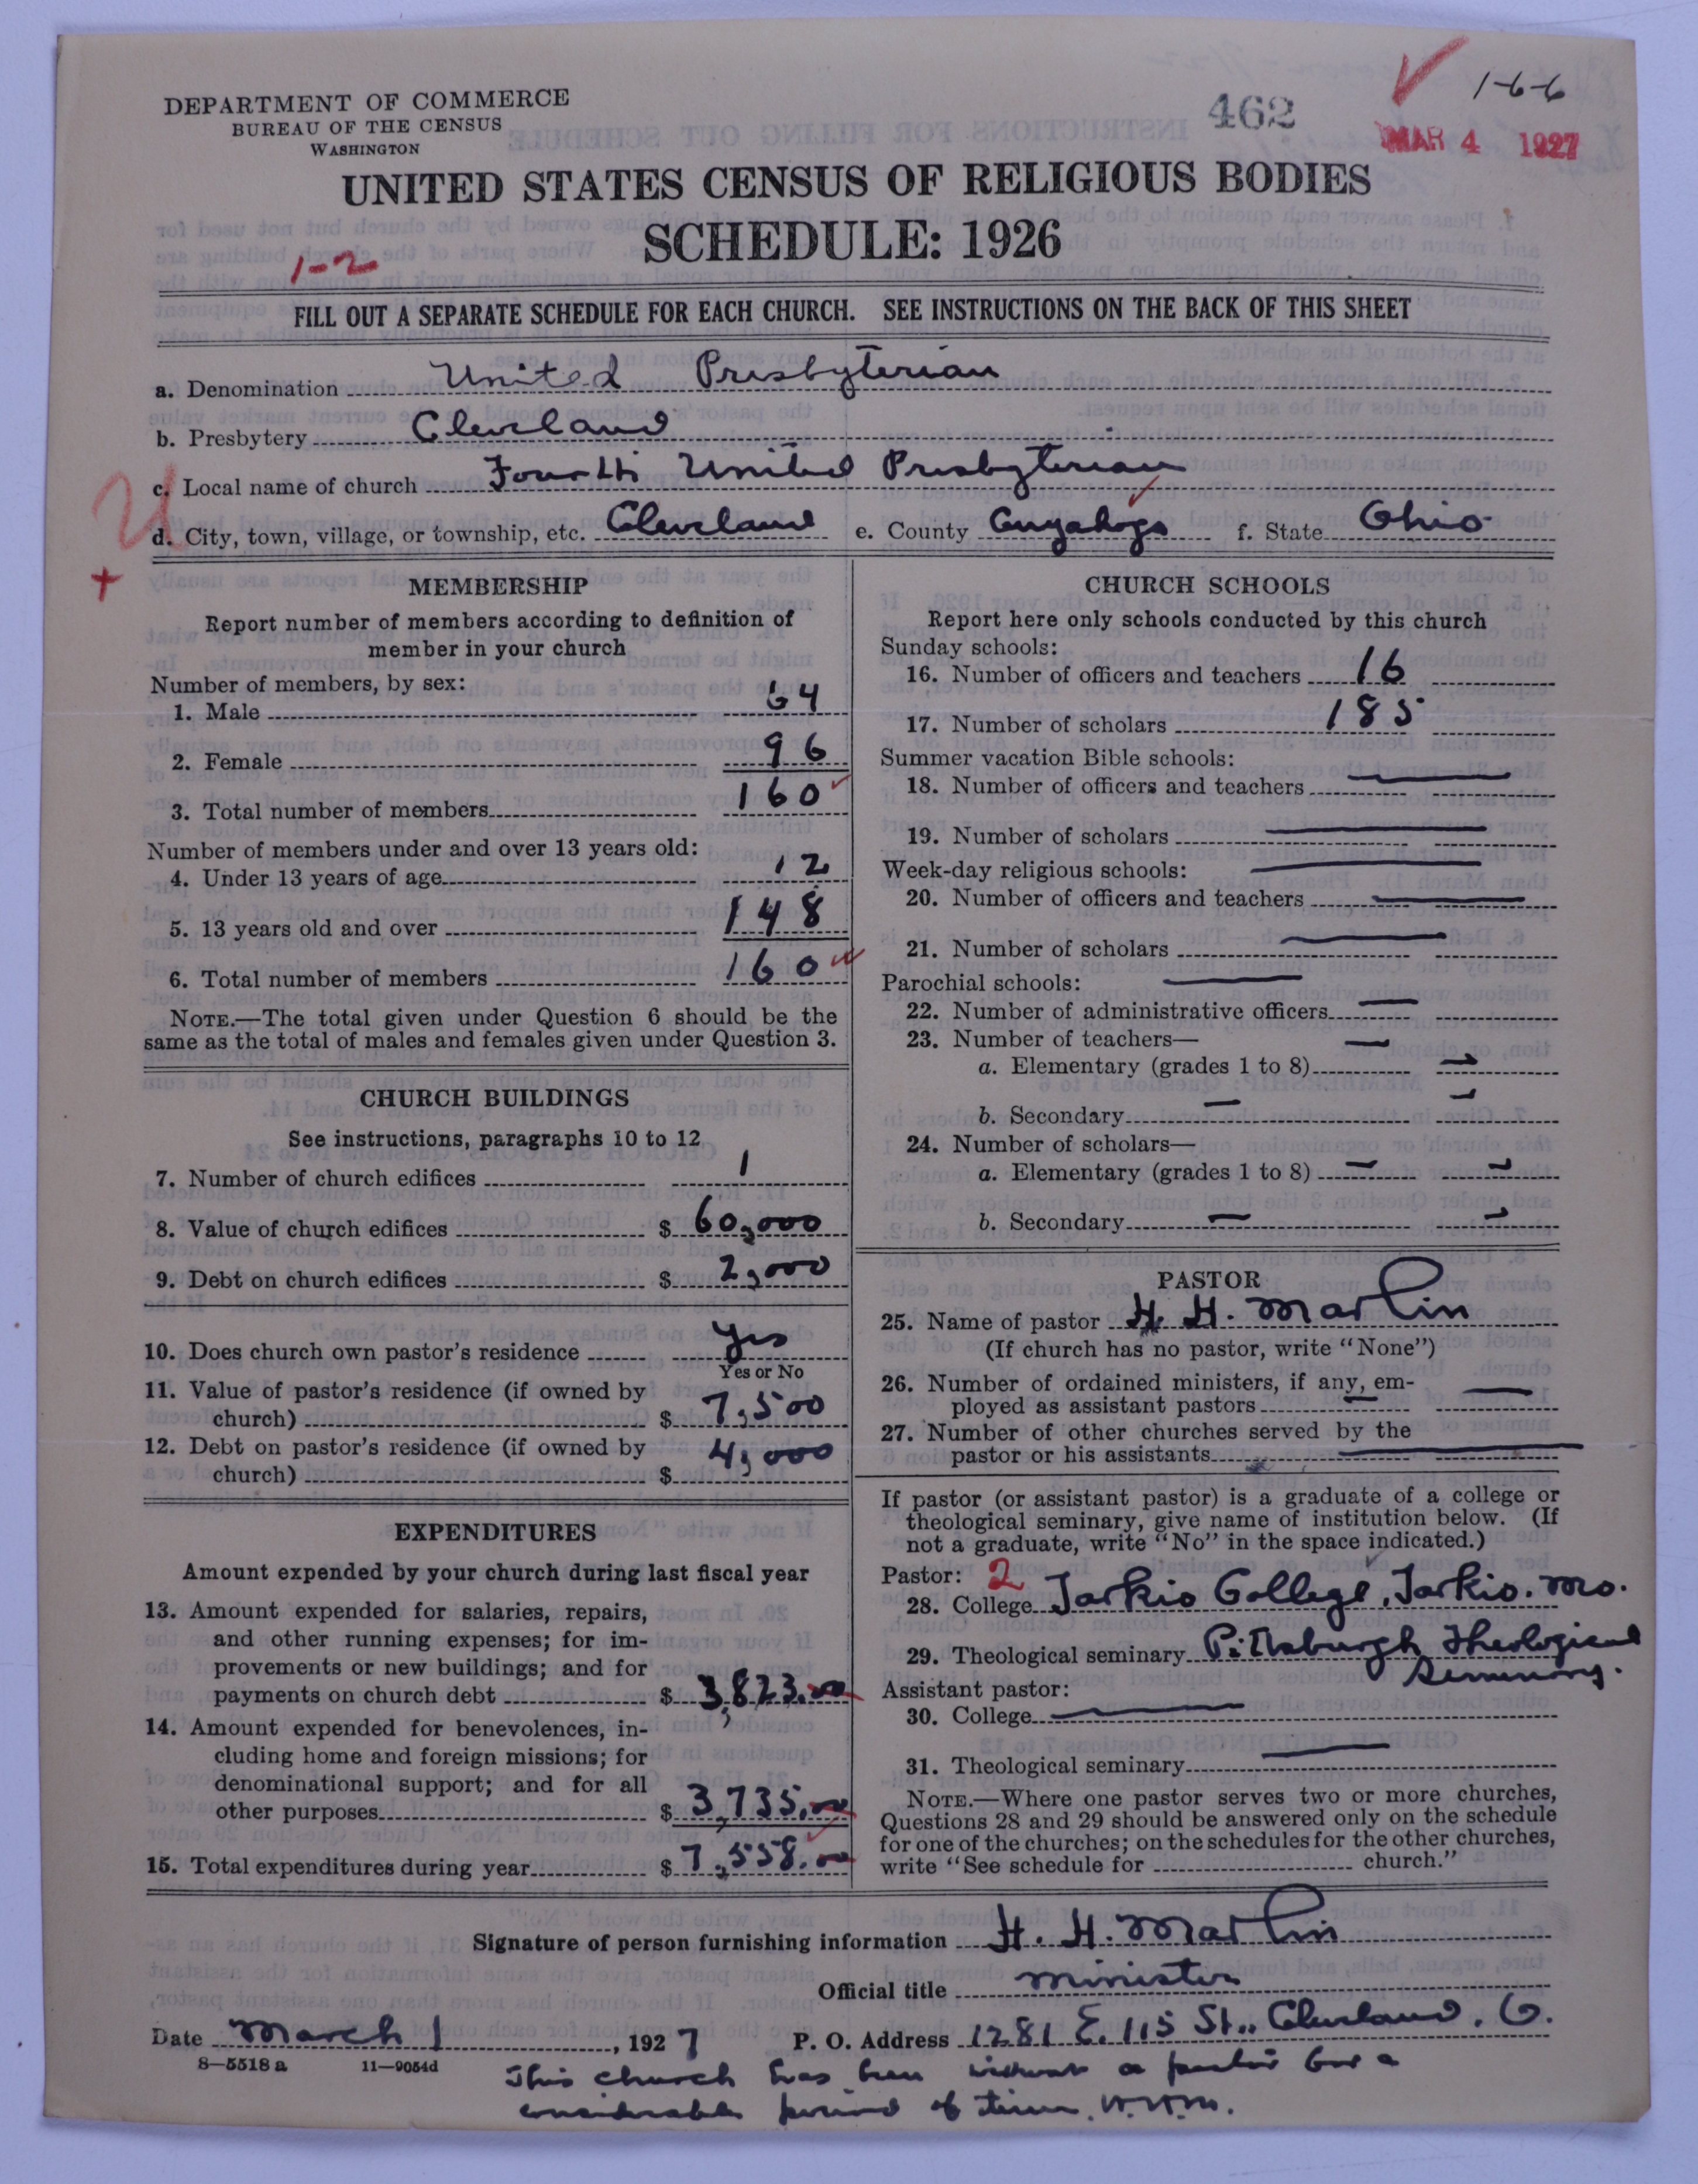 DEPARTMENT OF COMMERCE
BUREAU OF THE CENSUS
WASHINGTON
462
1-6-6
MAR 4 1927
UNITED STATES CENSUS OF RELIGIOUS BODIES
SCHEDULE: 1926
1-2
FILL OUT A SEPARATE SCHEDULE FOR EACH CHURCH. SEE INSTRUCTIONS ON THE BACK OF THIS SHEET
a. Denomination United Presbyterian
b. Presbytery Cleveland
c. Local name of church Fourth United Presbyterian
d. City, town, village, or township, etc. Cleveland e. County Cuyahoga f. State Ohio
MEMBERSHIP
Report number of members according to definition of
member in your church
Number of members, by sex:
1. Male 64
2. Female 96
3. Total number of members 160
Number of members under and over 13 years old:
4. Under 13 years of age 12
5. 13 years old and over 148
6. Total number of members 160
NOTE.—The total given under Question 6 should be the
same as the total of males and females given under Question 3.
CHURCH BUILDINGS
See instructions, paragraphs 10 to 12
7. Number of church edifices 1
8. Value of church edifices $ 60,000
9. Debt on church edifices $ 2,000
10. Does church own pastor's residence Yes
Yes or No
11. Value of pastor's residence (if owned by
church) $ 7,500
12. Debt on pastor's residence (if owned by
church) $ 4,000
EXPENDITURES
Amount expended by your church during last fiscal year
13. Amount expended for salaries, repairs,
and other running expenses; for im-
provements or new buildings; and for
payments on church debt $ 3,823.00
14. Amount expended for benevolences, in-
cluding home and foreign missions; for
denominational support; and for all
other purposes $ 3,735.00
15. Total expenditures during year $ 7,558.00
CHURCH SCHOOLS
Report here only schools conducted by this church
Sunday schools:
16. Number of officers and teachers 16
17. Number of scholars 185
Summer vacation Bible schools:
18. Number of officers and teachers
19. Number of scholars
Week-day religious schools:
20. Number of officers and teachers
21. Number of scholars
Parochial schools:
22. Number of administrative officers
23. Number of teachers—
a. Elementary (grades 1 to 8)
b. Secondary
24. Number of scholars—
a. Elementary (grades 1 to 8)
b. Secondary
PASTOR
25. Name of pastor H. H. Marlin
(If church has no pastor, write "None")
26. Number of ordained ministers, if any, em-
ployed as assistant pastors
27. Number of other churches served by the
pastor or his assistants
If pastor (or assistant pastor) is a graduate of a college or
theological seminary, give name of institution below. (If
not a graduate, write "No" in the space indicated.)
Pastor: 2
28. College Tarkio College, Tarkio. Mo.
29. Theological seminary Pittsburgh Theological
Seminary.
Assistant pastor:
30. College
31. Theological seminary
NOTE.—Where one pastor serves two or more churches,
Questions 28 and 29 should be answered only on the schedule
for one of the churches; on the schedules for the other churches,
write "See schedule for church."
Signature of person furnishing information H. H. Marlin
Official title Minister
Date March 1, 1927 P. O. Address 1281 E. 115 St., Cleveland, O.
8-5518a 11-9054d
This church has been without a pastor for a
considerable period of time. H.H.M.